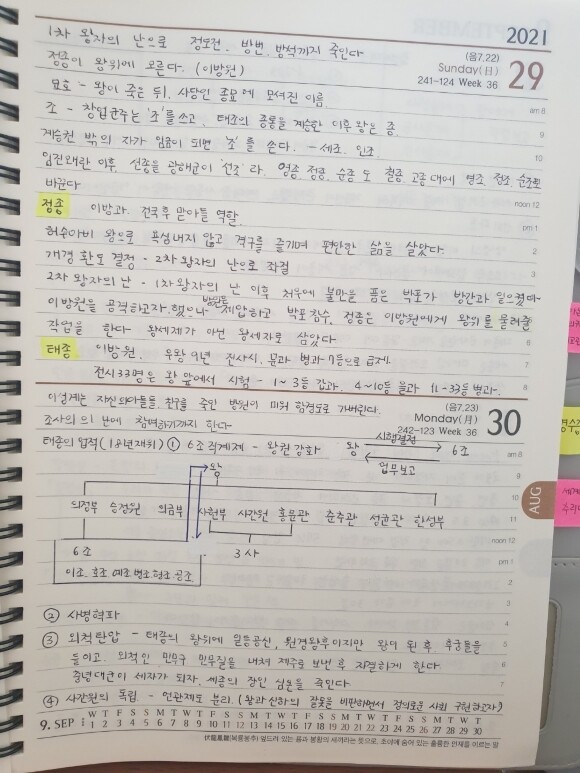 2021
(음7.22)
Sunday(日) 29
241-124 Week 36
1차 왕자의 난으로 정도전, 방번, 방석까지 죽인다
정종이 왕위에 오른다. (이방원)
묘호 - 왕이 죽은 뒤, 사당인 종묘에 모셔진 이름.
조 - 창업군주는 '조'를 쓰고, 태조의 종통을 계승한 이후 왕은 종.
계승권 밖의 자가 임금이 되면 '조'를 쓴다. - 세조, 인조
임진왜란 이후, 선종을 광해군이 '선조'라. 영종, 정종, 순종도 철종, 고종 대에 영조, 정조, 순조로
바뀐다
정종 이방과. 건국 후 맏아들 역할.
허수아비 왕으로 욕심내지 않고 격구를 즐기며 편안한 삶을 살았다.
개경 환도 결정 - 2차 왕자의 난으로 좌절
2차 왕자의 난 - 1차 왕자의 난 이후 처우에 불만을 품은 박포가 방간과 일으켰다
이방원을 공격하고자 했으나 방원은 제압하고 박포 참수, 정종은 이방원에게 왕위를 물려줄
작업을 한다 왕세제가 아닌 왕세자로 삼았다
태종 이방원. 우왕 9년 전시시, 문과 병과 7등으로 급제.
전시 33명은 왕 앞에서 시험 - 1~3등 갑과, 4~10등 을과 11-33등 병과.
(음7.23)
Monday(月) 30
242-123 Week 36
이성계는 자신의 아들들, 친구를 죽인 방원이 미워 함경도로 가버린다.
조사의의 난에 참여하기까지 한다
태종의 업적(18년 재위) ① 6조 직계제 - 왕권강화 왕 시행결정 6조
업무보고
왕
의정부 승정원 의금부 사헌부 사간원 홍문관 춘추관 성균관 한성부
6조 3사
이조, 호조 예조 병조 형조 공조
AUG
② 사병혁파
③ 외척탄압 - 태종의 왕위에 일등공신, 원경왕후이지만 왕이 된 후 후궁들을
들이고, 외척인 민무구 민무질을 내쳐 제주로 보낸 후 자결하게 한다.
충녕대군이 세자가 되자, 세종의 장인 심온을 죽인다
④ 사간원의 독립 - 언관제도 분리. (왕과 신하의 잘못을 비판하면서 정의로운 사회 구현하고자)
W T F S S M T W T F S S M T W T F S S M T W T F S S M T W T
9. SEP 1 2 3 4 5 6 7 8 9 10 11 12 13 14 15 16 17 18 19 20 21 22 23 24 25 26 27 28 29 30
伏龍鳳雛(복룡봉추) 엎드려 있는 용과 봉황의 새끼라는 뜻으로, 초야에 숨어 있는 훌륭한 인재를 이르는 말